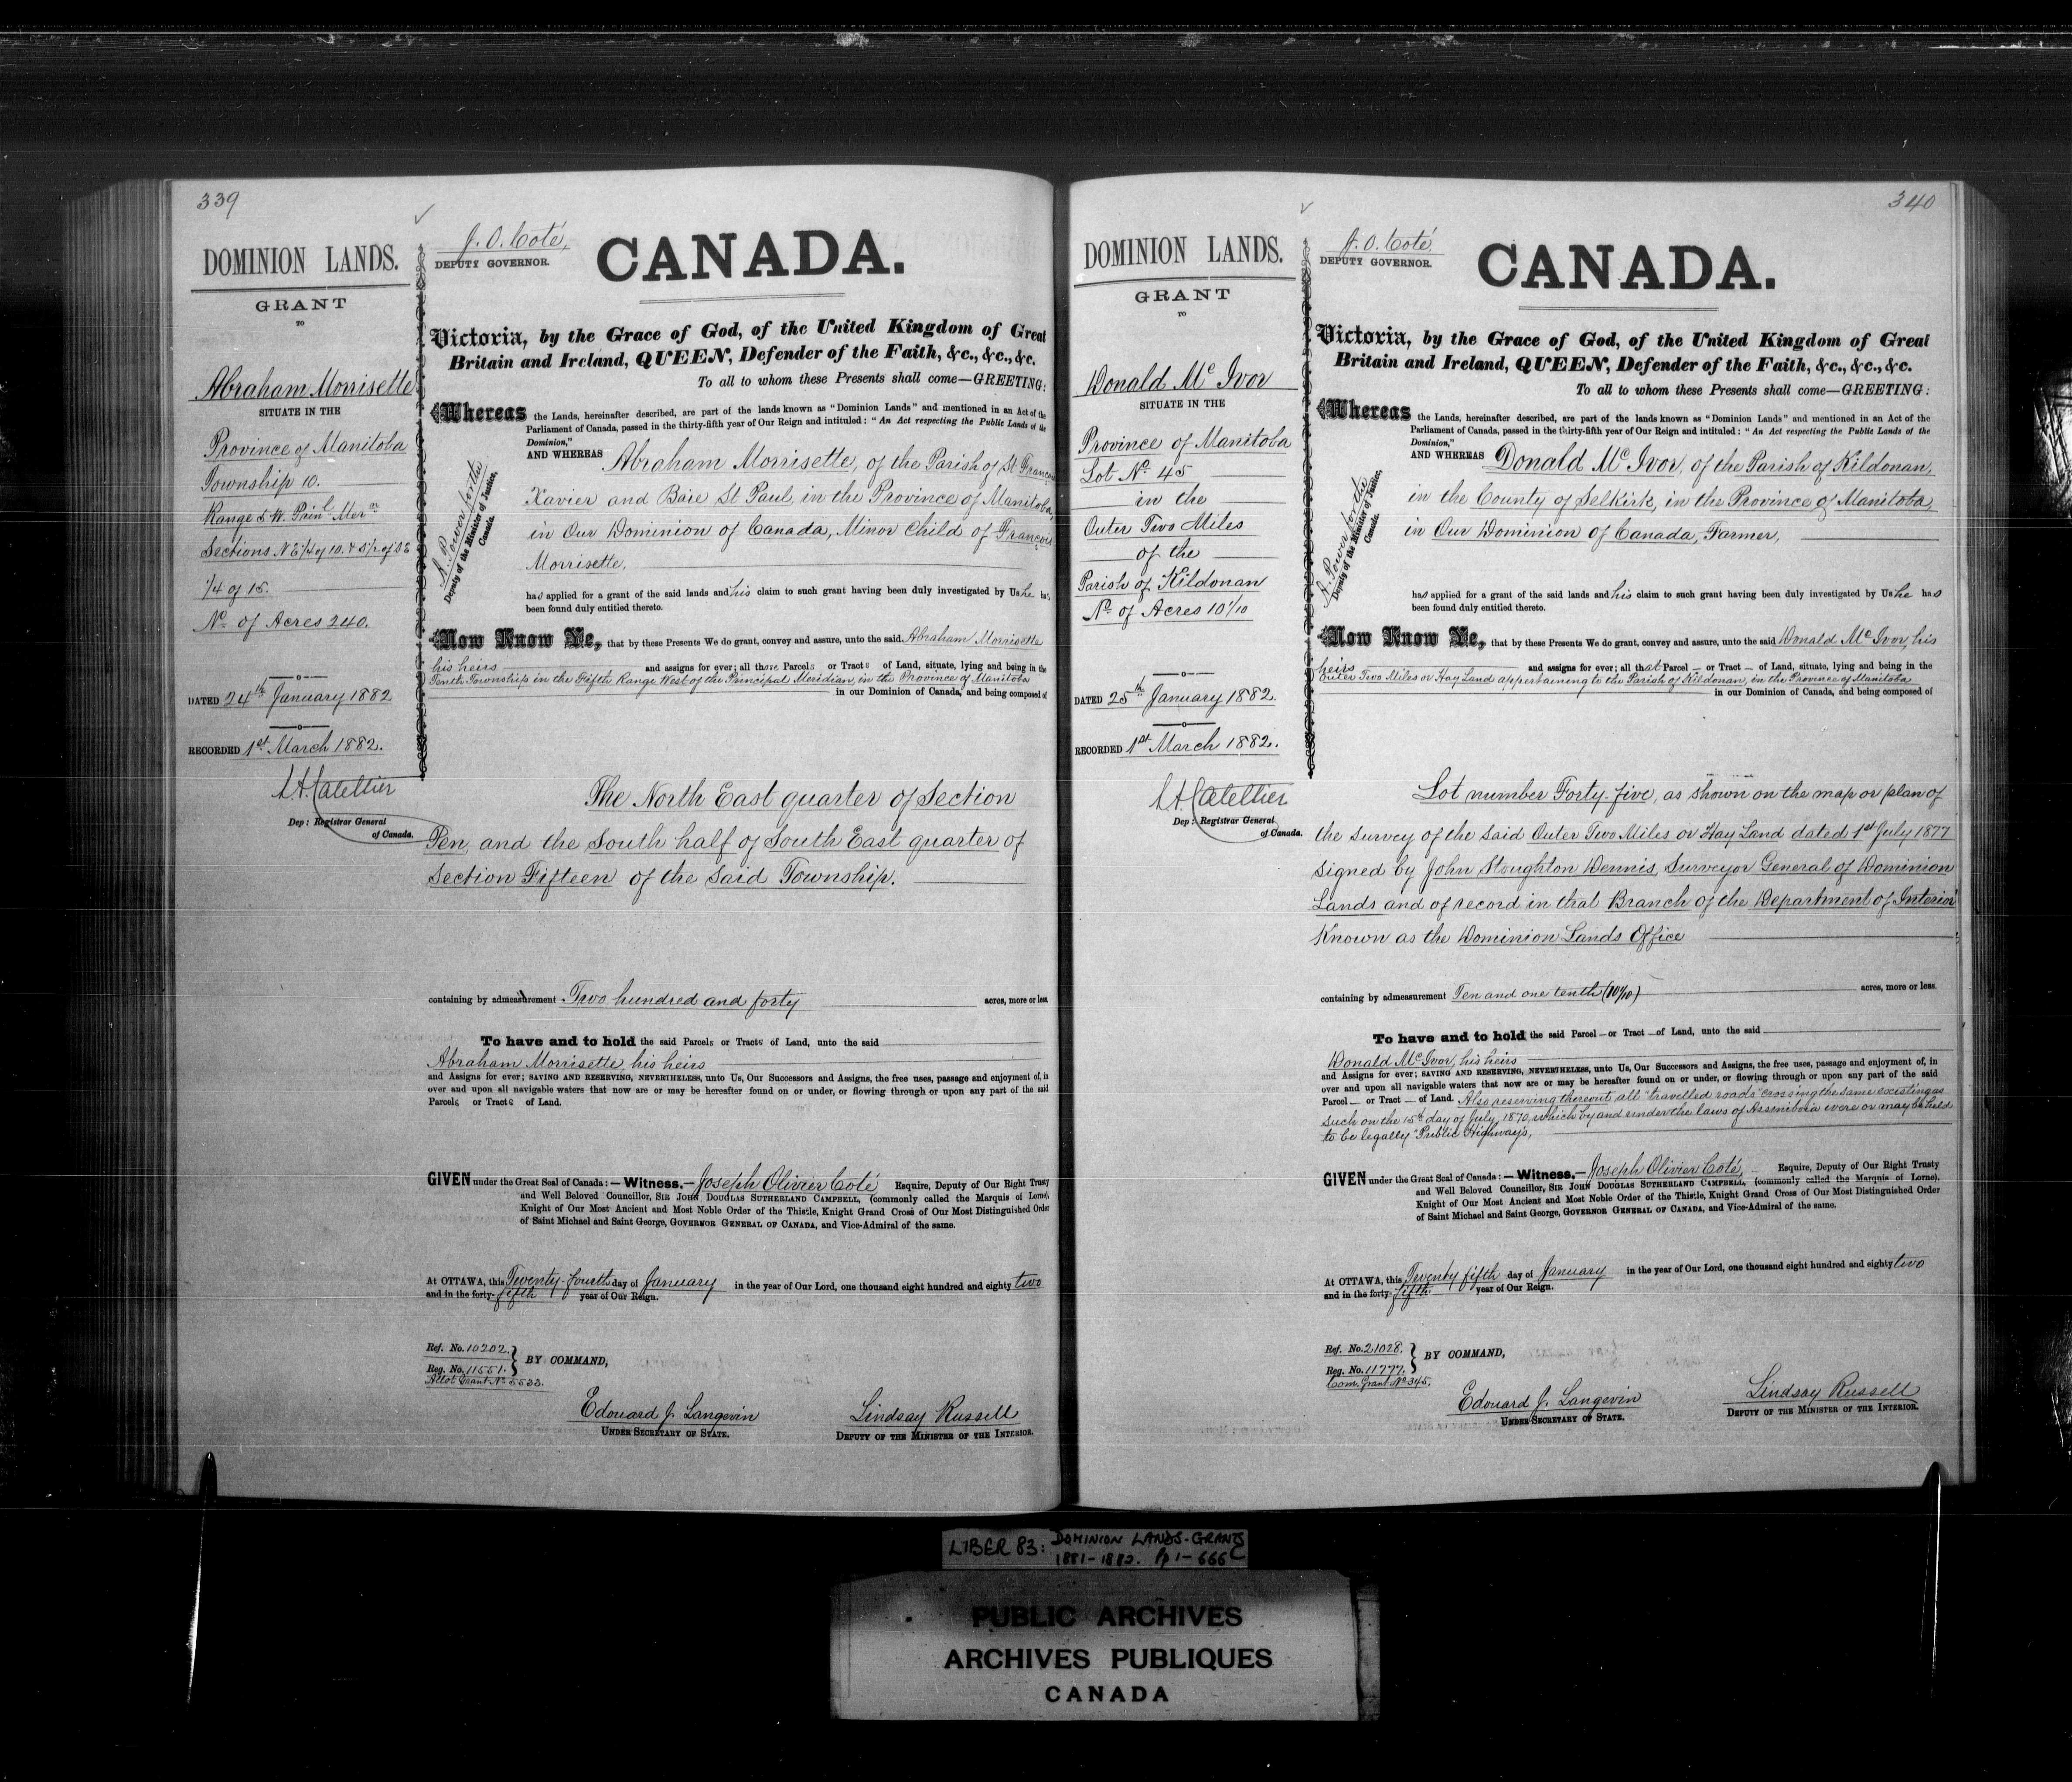 339
DOMINION LANDS.
GRANT
TO
Abraham Morrisette
SITUATE IN THE
Province of Manitoba
Township 10.
Range 5 W. Prinl. Mern.
Sections N E 1/4 of 10. & S 1/2 of S E
1/4 of 15.
No. of Acres 240.
DATED 24th January 1882
RECORDED 1st March 1882.
Dep: Registrar General
of Canada.
J. O. Coté,
DEPUTY GOVERNOR.
CANADA.
Victoria, by the Grace of God, of the United Kingdom of Great
Britain and Ireland, QUEEN, Defender of the Faith, &c., &c., &c.
To all to whom these Presents shall come—GREETING:
A. Power for the
Deputy of the Minister of Justice,
Canada.
Whereas the Lands, hereinafter described, are part of the lands known as "Dominion Lands" and mentioned in an Act of the
Parliament of Canada, passed in the thirty-fifth year of Our Reign and intituled: "An Act respecting the Public Lands of the
Dominion,"
AND WHEREAS Abraham Morrisette, of the Parish of St François
Xavier and Baie St Paul, in the Province of Manitoba,
in Our Dominion of Canada, Minor Child of François
Morrisette,
had applied for a grant of the said lands and his claim to such grant having been duly investigated by Us he has
been found duly entitled thereto.
Now Know Ye, that by these Presents We do grant, convey and assure, unto the said Abraham Morrisette
his heirs and assigns for ever; all those Parcels or Tracts of Land, situate, lying and being in the
Tenth Township in the Fifth Range West of the Principal Meridian, in the Province of Manitoba
in our Dominion of Canada, and being composed of
The North East quarter of Section
Ten, and the South half of South East quarter of
Section Fifteen of the said Township.
containing by admeasurement Two hundred and forty acres, more or less.
To have and to hold the said Parcels or Tracts of Land, unto the said
Abraham Morrisette, his heirs
and Assigns for ever; SAVING AND RESERVING, NEVERTHELESS, unto Us, Our Successors and Assigns, the free uses, passage and enjoyment of, in
over and upon all navigable waters that now are or may be hereafter found on or under, or flowing through or upon any part of the said
Parcels or Tracts of Land.
GIVEN under the Great Seal of Canada:—Witness,—Joseph Olivier Coté Esquire, Deputy of Our Right Trusty
and Well Beloved Councillor, SIR JOHN DOUGLAS SUTHERLAND CAMPBELL, (commonly called the Marquis of Lorne),
Knight of Our Most Ancient and Most Noble Order of the Thistle, Knight Grand Cross of Our Most Distinguished Order
of Saint Michael and Saint George, GOVERNOR GENERAL OF CANADA, and Vice-Admiral of the same.
At OTTAWA, this Twenty-fourth day of January in the year of Our Lord, one thousand eight hundred and eighty two
and in the forty-fifth year of Our Reign.
Ref. No. 10202.
Reg. No. 11551.
Allot Grant No 5533.
BY COMMAND,
Edouard J. Langevin
UNDER SECRETARY OF STATE.
Lindsay Russell
DEPUTY OF THE MINISTER OF THE INTERIOR.
340
DOMINION LANDS.
GRANT
TO
Donald McIvor
SITUATE IN THE
Province of Manitoba
Lot No. 45
in the
Outer Two Miles
of the
Parish of Kildonan
No. of Acres 10 1/10
DATED 25th January 1882.
RECORDED 1st March 1882.
Dep: Registrar General
of Canada.
J. O. Coté
DEPUTY GOVERNOR.
CANADA.
Victoria, by the Grace of God, of the United Kingdom of Great
Britain and Ireland, QUEEN, Defender of the Faith, &c., &c., &c.
To all to whom these Presents shall come—GREETING:
A. Power for the
Deputy of the Minister of Justice,
Canada.
Whereas the Lands, hereinafter described, are part of the lands known as "Dominion Lands" and mentioned in an Act of the
Parliament of Canada, passed in the thirty-fifth year of Our Reign and intituled: "An Act respecting the Public Lands of the
Dominion,"
AND WHEREAS Donald McIvor, of the Parish of Kildonan,
in the County of Selkirk, in the Province of Manitoba,
in Our Dominion of Canada, Farmer,
had applied for a grant of the said lands and his claim to such grant having been duly investigated by Us he has
been found duly entitled thereto.
Now Know Ye, that by these Presents We do grant, convey and assure, unto the said Donald McIvor, his
heirs and assigns for ever; all that Parcel or Tract of Land, situate, lying and being in the
Outer Two Miles or Hay Land appertaining to the Parish of Kildonan, in the Province of Manitoba
in our Dominion of Canada, and being composed of
Lot number Forty-five, as shown on the map or plan of
the survey of the said Outer Two Miles or Hay Land dated 1st July 1877
signed by John Stoughton Dennis, Surveyor General of Dominion
Lands and of record in that Branch of the Department of Interior
Known as the Dominion Lands Office
containing by admeasurement Ten and one tenth (10 1/10) acres, more or less.
To have and to hold the said Parcel or Tract of Land, unto the said
Donald McIvor, his heirs
and Assigns for ever; SAVING AND RESERVING, NEVERTHELESS, unto Us, Our Successors and Assigns, the free uses, passage and enjoyment of, in
over and upon all navigable waters that now are or may be hereafter found on or under, or flowing through or upon any part of the said
Parcel or Tract of Land. Also reserving thereout all "travelled roads" crossing the same existing as
such on the 15th day of July, 1870, which by and under the laws of Assiniboia were or may be held
to be legally "Public Highways,
GIVEN under the Great Seal of Canada:—Witness,—Joseph Olivier Coté, Esquire, Deputy of Our Right Trusty
and Well Beloved Councillor, SIR JOHN DOUGLAS SUTHERLAND CAMPBELL, (commonly called the Marquis of Lorne),
Knight of Our Most Ancient and Most Noble Order of the Thistle, Knight Grand Cross of Our Most Distinguished Order
of Saint Michael and Saint George, GOVERNOR GENERAL OF CANADA, and Vice-Admiral of the same.
At OTTAWA, this Twenty fifth day of January in the year of Our Lord, one thousand eight hundred and eighty two
and in the forty-fifth year of Our Reign.
Ref. No. 21028.
Reg. No. 11777.
Com. Grant No 345.
BY COMMAND,
Edouard J. Langevin
UNDER SECRETARY OF STATE.
Lindsay Russell
DEPUTY OF THE MINISTER OF THE INTERIOR.
LIBER 83: DOMINION LANDS-GRANTS
1881-1882. Pp 1-666
PUBLIC ARCHIVES
ARCHIVES PUBLIQUES
CANADA